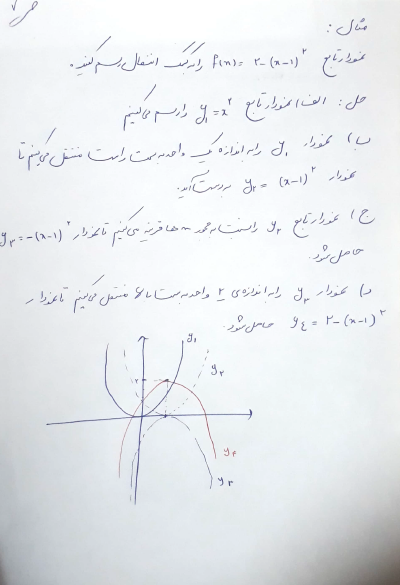 ص ۷
مثال :
نمودار تابع f(x) = ۲-(x-۱)^۲ را به کمک انتقال رسم کنید.
حل : الف) نمودار تابع y₁ = x^۲ را رسم می‌کنیم
ب) نمودار y₁ را به اندازه‌ی یک واحد به سمت راست منتقل می‌کنیم تا
نمودار y₂ = (x-۱)^۲ بدست آید.
ج) نمودار تابع y₂ را نسبت به محور x ها قرینه می‌کنیم تا نمودار y₃ = -(x-۱)^۲
حاصل شود.
د) نمودار y₃ را به اندازه‌ی ۲ واحد به سمت بالا منتقل می‌کنیم تا نمودار
y₄ = ۲-(x-۱)^۲ حاصل شود.
y₁
y₂
۲
y₄
y₃